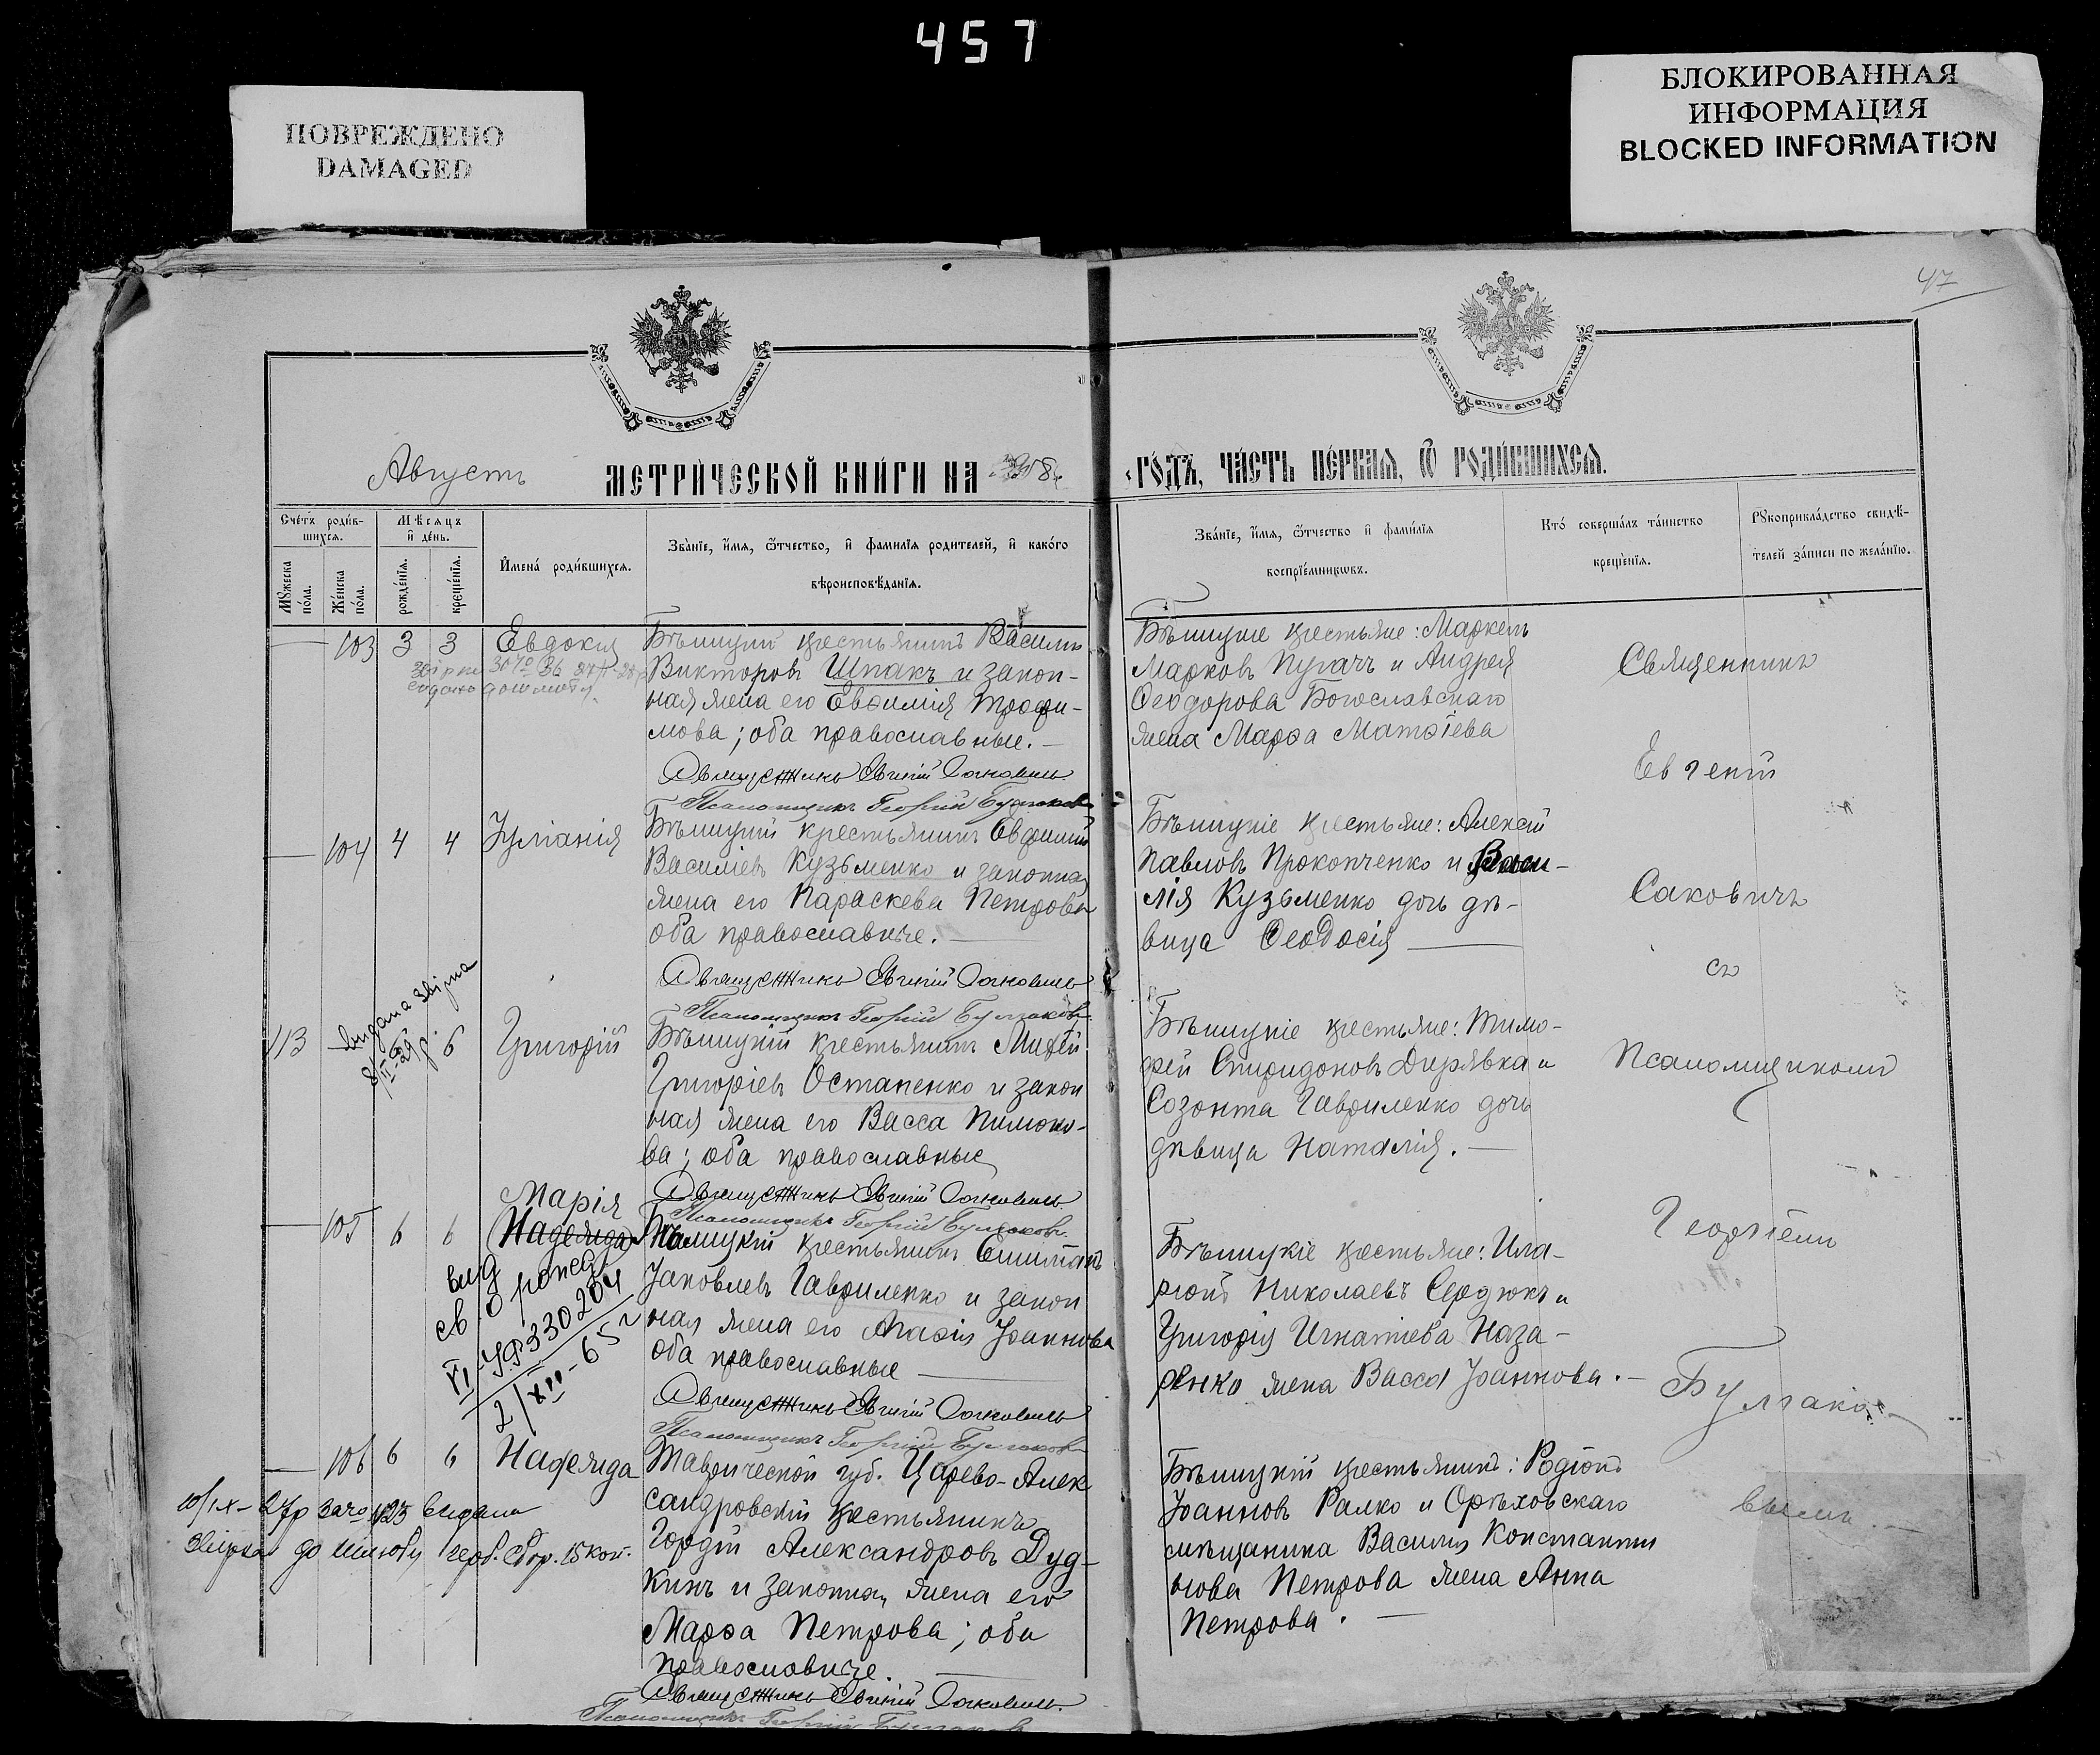 457
ПОВРЕЖДЕНО
DAMAGED
БЛОКИРОВАННАЯ
ИНФОРМАЦИЯ
BLOCKED INFORMATION
47
Августъ
МЕТРИ́ЧЕСКОЙ КНИ́ГИ НА 1908
ГО́ДЪ, ЧА́СТЬ ПЕ́РВАЯ, Ѿ РОДИ́ВШИХСЯ.
Сче́тъ роди́в-
шихся.
Мѣсяцъ
и де́нь.
Мꙋжеска
по́ла.
Же́нска
по́ла.
рожде́нїя.
креще́нїя.
Имена́ роди́вшихся.
Зва́нїе, и́мя, ѻ́тчество, и фами́лїя родителей, и како́го
вѣроисповѣ́данїя.
Зва́нїе, и́мя, ѻ́тчество и фами́лїя
воспрїе́мникѡвъ.
Кто́ соверша́лъ та́инство
креще́нїя.
Рꙋкоприкла́дство свидѣ́-
телей за́писи по жела́нїю.
103 3 3 Евдокія
Бѣлицкій крестьянинъ Василій
Викторовъ Шпакъ и закон-
ная жена его Евѳимія Трофи-
мова; оба православные. —
Священникъ Евгеній Саковичъ
Псаломщикъ Георгій Булгаковъ
Бѣлицкіе крестьяне: Маркелъ
Марковъ Пугачъ и Андрея
Ѳеодорова Богославскаго
жена Марѳа Матѳіева
104 4 4 Іуліанія
Бѣлицкій крестьянинъ Евфимій
Василіевъ Кузьменко и законная
жена его Параскева Петрова
оба православные. —
Священникъ Евгеній Саковичъ
Псаломщикъ Георгій Булгаковъ
Бѣлицкіе крестьяне: Алексій
Павловъ Прокопченко и Васи-
лія Кузьменко дочь дѣ-
вица Ѳеодосія —
113 6 6 Григорій
видана звірка
Бѣлицкій крестьянинъ Михей
Григоріевъ Остапенко и закон
ная жена его Васса Пимоно-
ва; оба православные
Священникъ Евгеній Саковичъ
Псаломщикъ Георгій Булгаковъ
Бѣлицкіе крестьяне: Тимо-
фей Спиридоновъ Дирявка и
Созонта Гавриленко дочь
дѣвица Наталія. —
Марія
105 6 6 Надежда
Бѣлицкій крестьянинъ Епифанъ
Іаковлевъ Гавриленко и закон
ная жена его Марія Іоаннова
оба православные —
Священникъ Евгеній Саковичъ
Псаломщикъ Георгій Булгаковъ
вид
св. о рожд
VI-УР 330204
2/XII-65 г
Бѣлицкіе крестьяне: Ила-
ріонъ Николаевъ Сердюкъ и
Григорія Игнатіева Наза-
ренко жена Васса Іоаннова. —
106 6 6 Надежда
Таврической губ. Царево-Алек
сандровскій крестьянинъ
Гордій Александровъ Дуд-
кинъ и законная жена его
Марѳа Петрова; оба
православные. —
Священникъ Евгеній Саковичъ
Псаломщикъ Георгій Булгаковъ
10/IX-27р видана
звірка до шлюбу
Бѣлицкій крестьянинъ: Родіонъ
Іоанновъ Ралко и Орѣховскаго
мѣщанина Василія Константи
нова Петрова жена Анна
Петрова. —
Священникъ
Евгеній
Саковичъ
съ
Псаломщикомъ
Георгіемъ
Булгако-
вымъ. —